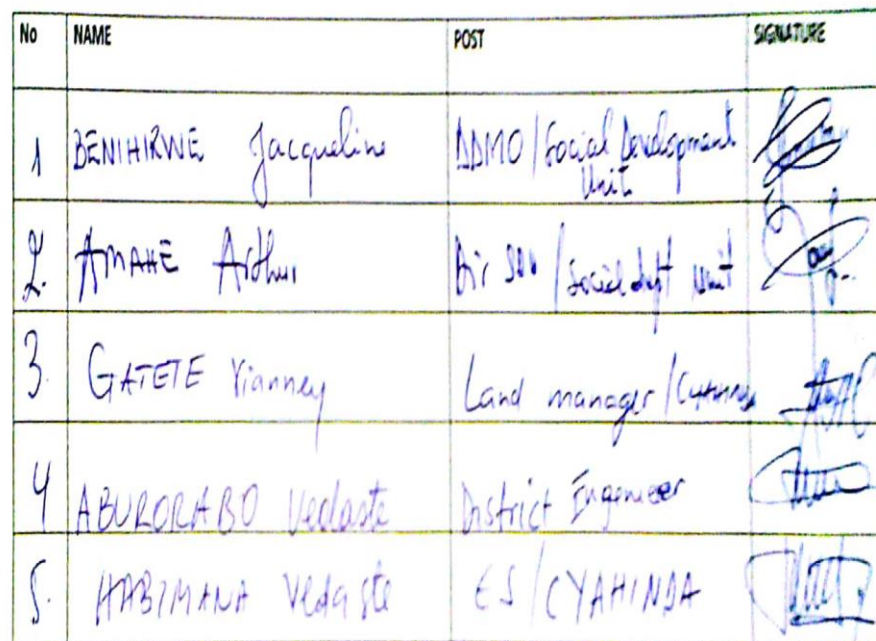 No NAME POST SIGNATURE
1 BENIHIRWE Jacqueline DDMO/Social Development
Unit
2. AMAHE Arthur Dir SDU/Social dvpt Unit
3. GATETE Vianney Land manager/
4 ABURORABO Vedaste District Engeneer
5. HABIMANA Vedaste ES/CYAHINDA